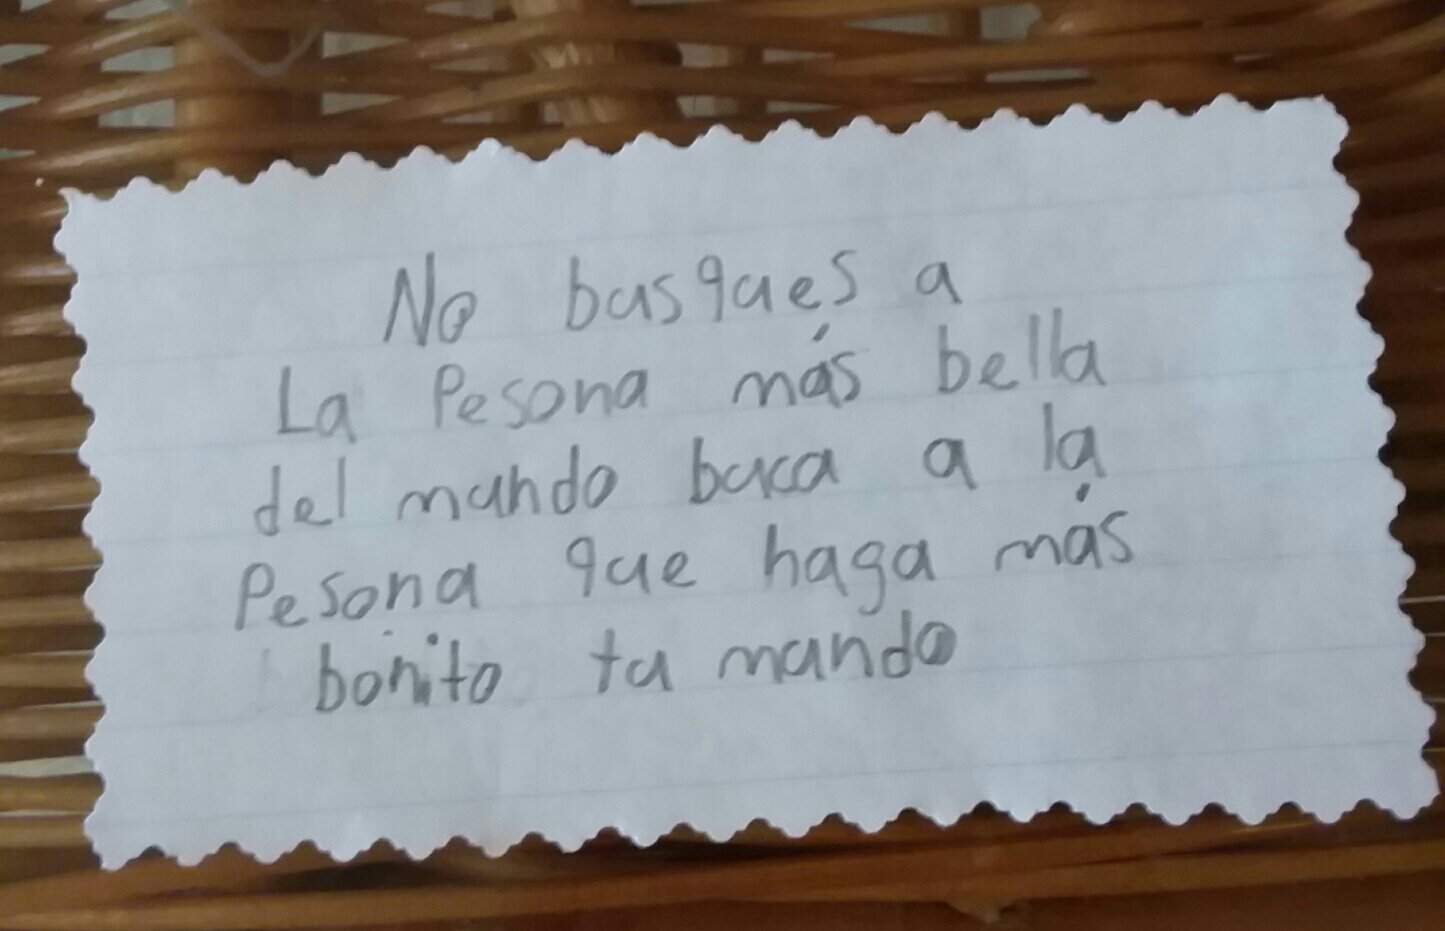 No busques a
La Pesona más bella
del mundo buca a la
Pesona que haga más
bonito tu mundo